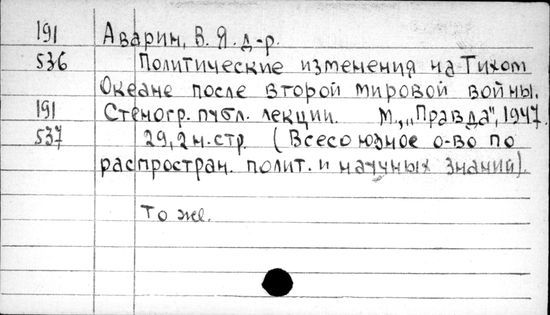 191 Аварин, В. Я. д-р.
536 Политические изменения на Тихом
Океане после второй мировой войны.
191 Стеногр. публ. лекции. М., „Правда", 1947.
537 29,2 н. стр. (Всесоюзное о-во по
распростран. полит. и научных знаний).
То же.